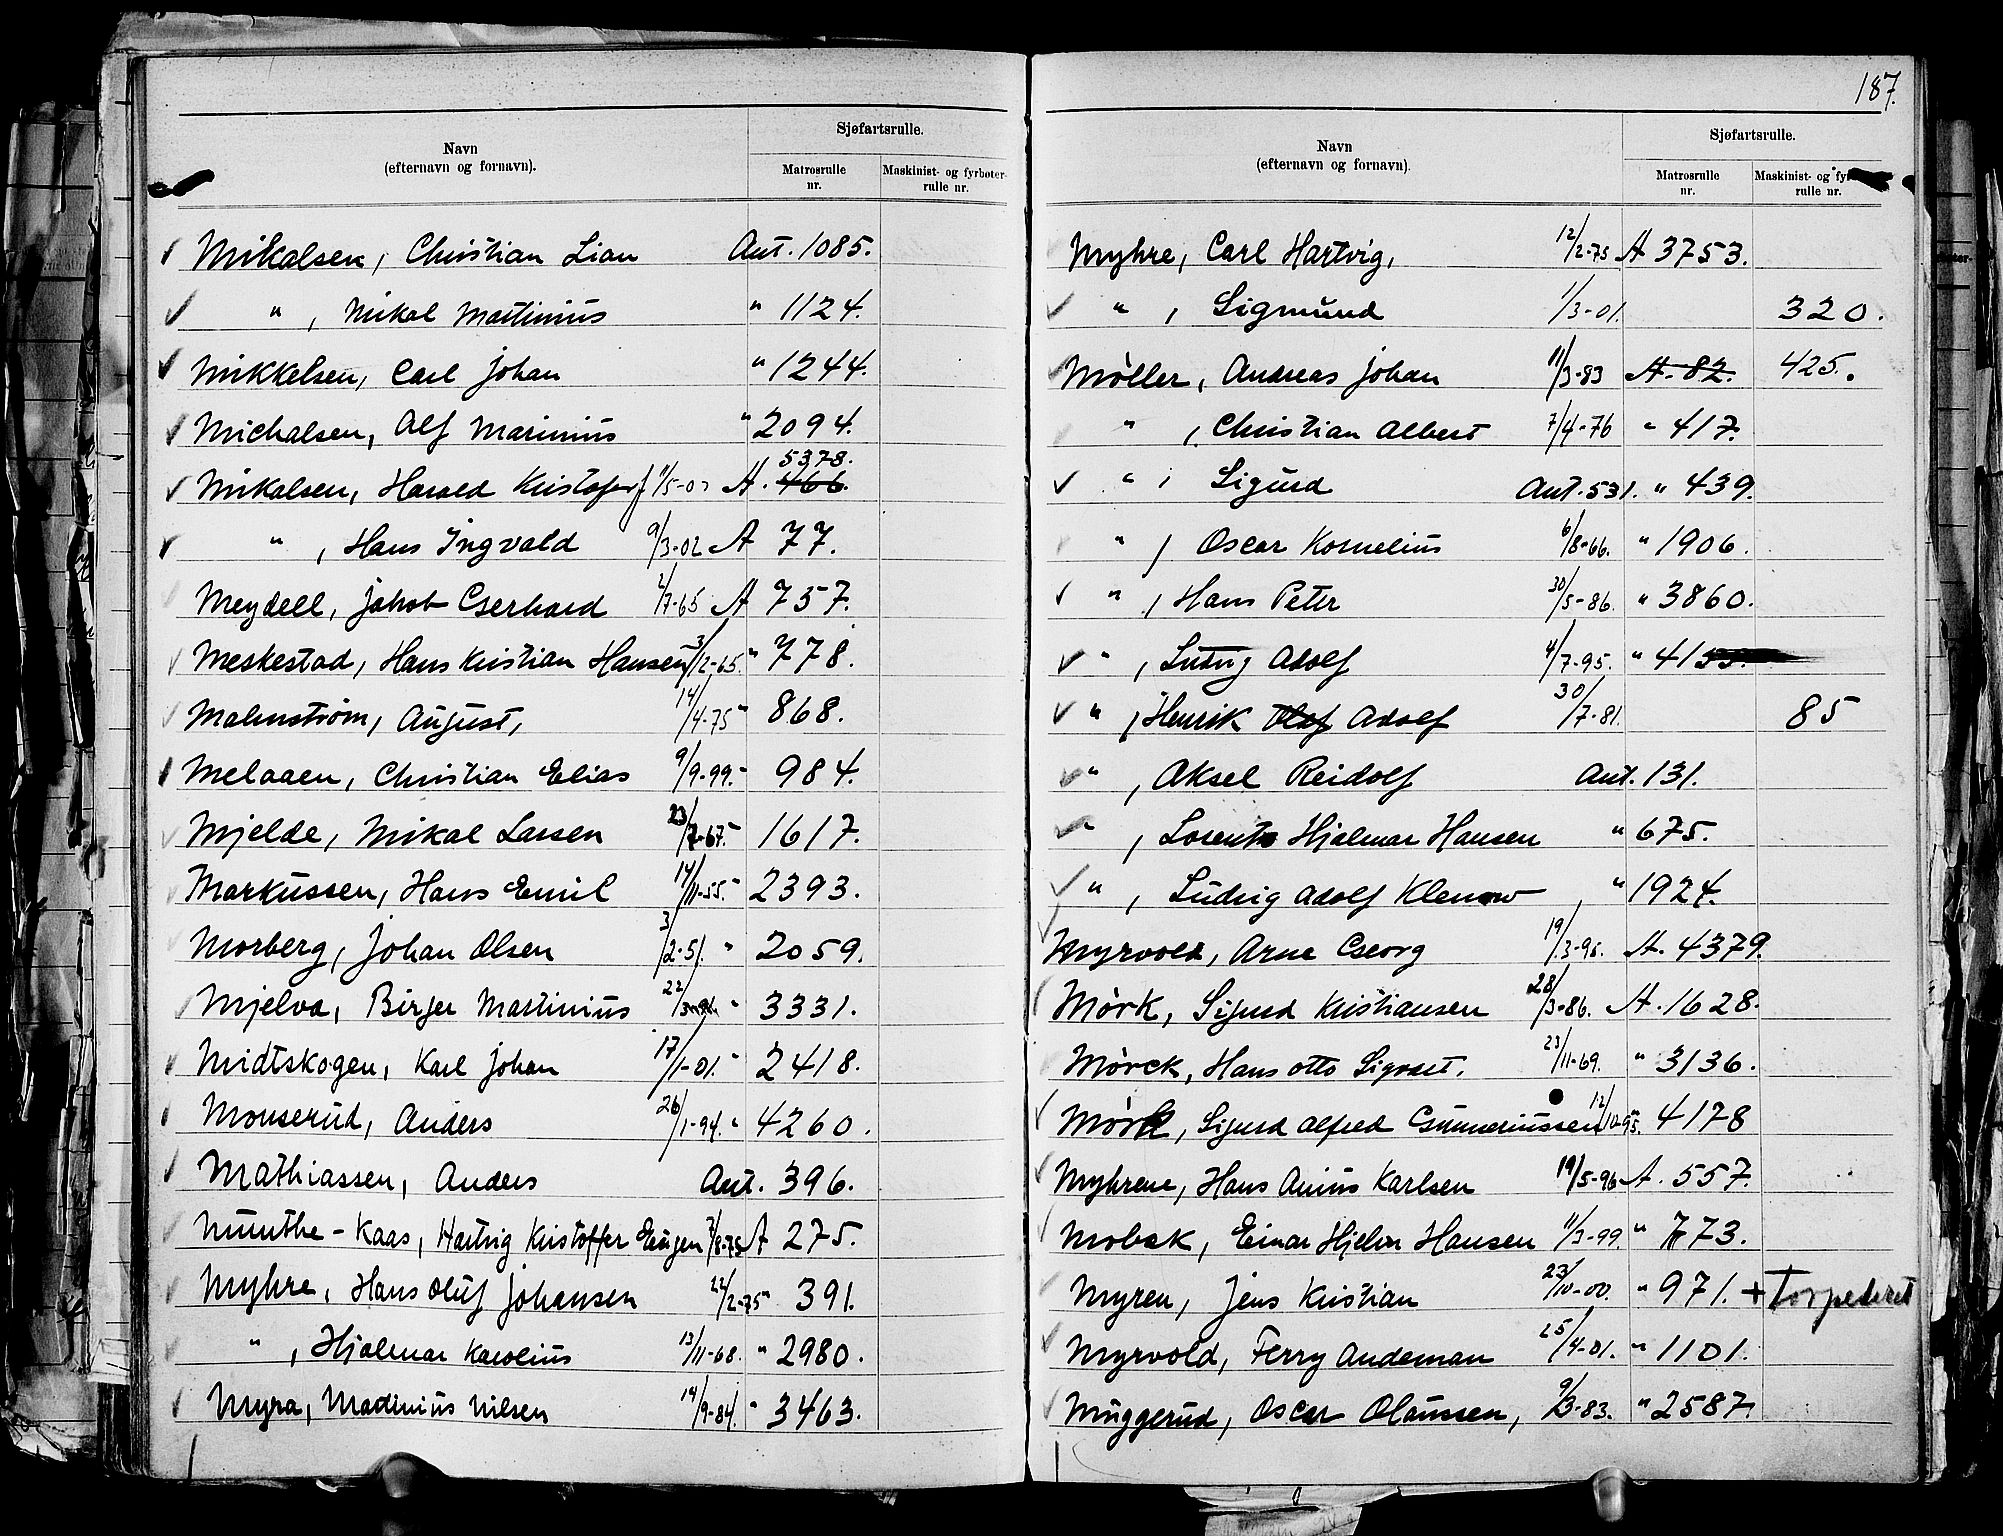 Navn
(efternavn og fornavn).
Sjøfartsrulle.
Matrosrulle
nr.
Maskinist- og fyrbøter-
rulle nr.
Mikalsen, Christian Lian Ant. 1085.
" , Mikal Martinius " 1124.
Mikkelsen, Carl Johan " 1244.
Michalsen, Alf Marinius " 2094.
5378.
Mikalsen, Harald Kristofer A. 466.
" , Hans Ingvald 9/3-02 A 77.
Meydell, Jakob Gerhard 2/7-65 A 757.
Meskestad, Hans Kristian Hansen 3/12-65. " 778.
Malmstrøm, August, 14/4-75 " 868.
Melaaen, Christian Elias 9/9-99. " 984.
Mjelde, Mikal Larsen 23/7-67. " 1617.
Markussen, Hans Emil 14/11-55. " 2393.
Morberg, Johan Olsen 3/2-51. " 2059.
Mjelva, Birger Martinius " 3331.
Midtskogen, Karl Johan 17/1-01. " 2418.
Monserud, Anders 26/1-94. " 4260.
Mathiassen, Anders Ant. 396.
Munthe-Kaas, Hartvig Kristoffer Eugen 7/8-75 A 275.
Myhre, Hans Oluf Johansen 22/2-75 " 391.
" , Hjalmar Karolius 13/11-68. " 2980.
Myra, Madinius Nilsen 14/9-84. " 3463.
187.
Navn
(efternavn og fornavn).
Sjøfartsrulle.
Matrosrulle
nr.
Maskinist- og
rulle nr.
Myhre, Carl Hartvig, 12/2-75 A 3753.
" , Sigmund 1/3-01. 320.
Møller, Andreas Johan 11/3-83 A. 82. 425.
" , Christian Albert 7/4-76 " 417.
" , Sigurd Ant. 531. " 439.
" , Oscar Kornelius 6/8-66. " 1906.
" , Hans Peter 30/5-86. " 3860.
" , Ludvig Adolf 4/7-95. " 41
" , Henrik Olaf Adolf 30/7-81. 85
" , Aksel Reidolf Ant. 131.
" , Lorentz Hjalmar Hansen " 675.
" , Ludvig Adolf Klenow " 1924.
Myrvold, Arne Georg 19/3-98. A. 4379.
Mørk, Sigurd Kristiansen 28/3-86. A. 1628.
Mørck, Hans Otto Sigvart. 23/11-69. " 3136.
Mørk, Sigurd Alfred Gunneriussen 12/10-95. " 4178
Myhrene, Hans Anius Karlsen 19/5-96 A. 557.
Mobæk, Einar Hjelm Hansen 11/3-99. " 773.
Myren, Jens Kristian 23/10-00. " 971. + Torpederet
Myrvold, Ferry Andeman 25/4-01. " 1101.
Muggerud, Oscar Olaussen, 9/3-83. " 2587.